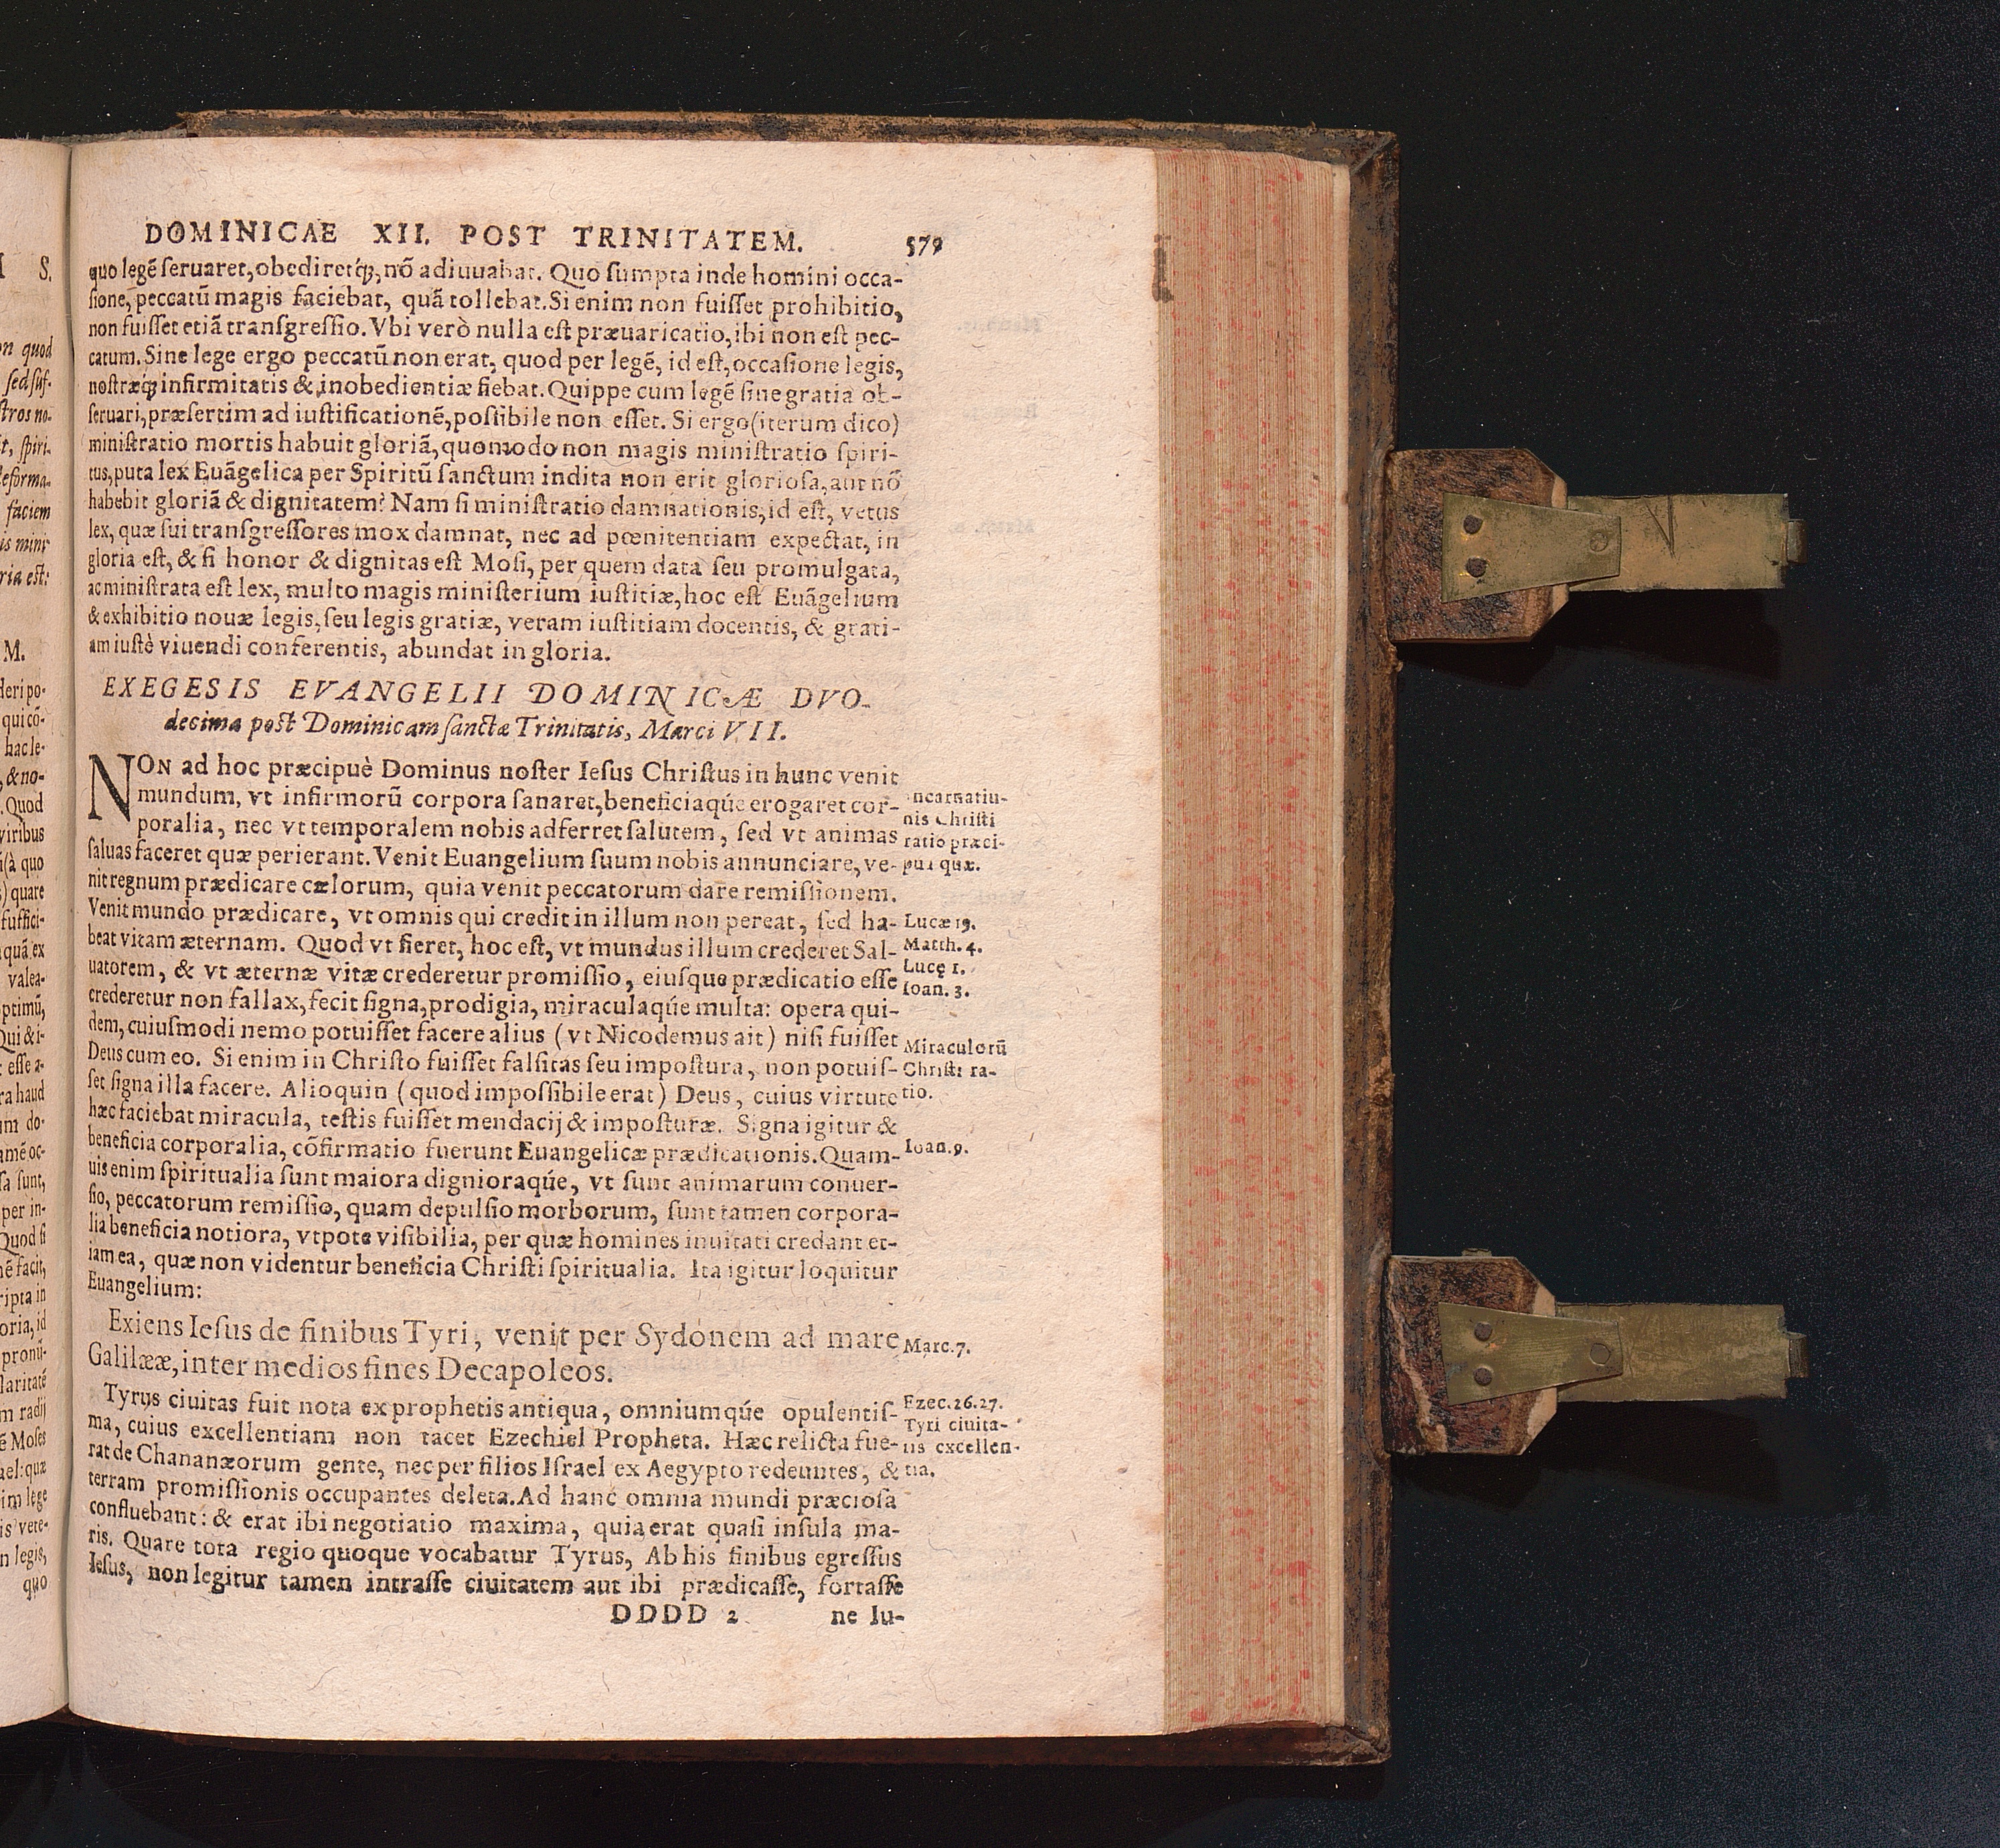 DOMINICAE XII. POST TRINITATEM. 579
quo legē ſeruaret, obediretq́;, nō adiuuabat. Quo ſumpta inde homini occa-
ſione, peccatū magis faciebat, quā tollebat. Si enim non fuiſſet prohibitio,
non fuiſſet etiā tranſgreſſio. Vbi verò nulla eſt præuaricatio, ibi non eſt pec-
catum. Sine lege ergo peccatū non erat, quod per legē, id eſt, occaſione legis,
noſtræq́; infirmitatis & inobedientiæ fiebat. Quippe cum legē ſine gratia ob-
ſeruari, præſertim ad iuſtificationē, poſſibile non eſſet. Si ergo (iterum dico)
miniſtratio mortis habuit gloriā, quomodo non magis miniſtratio ſpiri-
tus, puta lex Euāgelica per Spiritū ſanctum indita non erit glorioſa, aut nō
habebit gloriā & dignitatem? Nam ſi miniſtratio damnationis, id eſt, vetus
lex, quæ ſui tranſgreſſores mox damnat, nec ad pœnitentiam expectat, in
gloria eſt, & ſi honor & dignitas eſt Moſi, per quem data ſeu promulgata,
ac miniſtrata eſt lex, multo magis miniſterium iuſtitiæ, hoc eſt Euāgelium
& exhibitio nouæ legis, ſeu legis gratiæ, veram iuſtitiam docentis, & grati-
am iuſtè viuendi conferentis, abundat in gloria.
EXEGESIS EVANGELII DOMINICÆ DVO-
decima poſt Dominicam ſanctæ Trinitatis, Marci VII.
NON ad hoc præcipuè Dominus noſter Ieſus Chriſtus in hunc venit
mundum, vt infirmorū corpora ſanaret, beneficiaqúe erogaret cor-
poralia, nec vt temporalem nobis adferret ſalutem, ſed vt animas
ſaluas faceret quæ perierant. Venit Euangelium ſuum nobis annunciare, ve-
nit regnum prædicare cælorum, quia venit peccatorum dare remiſſionem.
Venit mundo prædicare, vt omnis qui credit in illum non pereat, ſed ha-
beat vitam æternam. Quod vt fieret, hoc eſt, vt mundus illum crederet Sal-
uatorem, & vt æternæ vitæ crederetur promiſſio, eiuſque prædicatio eſſe
crederetur non fallax, fecit ſigna, prodigia, miraculaqúe multa: opera qui-
dem, cuiuſmodi nemo potuiſſet facere alius (vt Nicodemus ait) niſi fuiſſet
Deus cum eo. Si enim in Chriſto fuiſſet falſitas ſeu impoſtura, non potuiſ-
ſet ſigna illa facere. Alioquin (quod impoſſibile erat) Deus, cuius virtute
hæc faciebat miracula, teſtis fuiſſet mendacij & impoſturæ. Signa igitur &
beneficia corporalia, cōfirmatio fuerunt Euangelicæ prædicationis. Quam-
uis enim ſpiritualia ſunt maiora dignioraqúe, vt ſunt animarum conuer-
ſio, peccatorum remiſſio, quam depulſio morborum, ſunt tamen corpora-
lia beneficia notiora, vtpote viſibilia, per quæ homines inuitati credant et-
iam ea, quæ non videntur beneficia Chriſti ſpiritualia. Ita igitur loquitur
Euangelium:
Exiens Ieſus de finibus Tyri, venit per Sydonem ad mare
Galilææ, inter medios fines Decapoleos.
Tyrus ciuitas fuit nota ex prophetis antiqua, omniumqúe opulentiſ-
ma, cuius excellentiam non tacet Ezechiel Propheta. Hæc relicta fue-
rat de Chananæorum gente, nec per filios Iſrael ex Aegypto redeuntes, &
terram promiſſionis occupantes deleta. Ad hanc omnia mundi præcioſa
confluebant: & erat ibi negotiatio maxima, quia erat quaſi inſula ma-
ris. Quare tota regio quoque vocabatur Tyrus, Ab his finibus egreſſus
Ieſus, non legitur tamen intraſſe ciuitatem aut ibi prædicaſſe, fortaſſe
DDDD 2 ne Iu-
ncarnatiu-
nis Chriſti
ratio præci-
pua quæ.
Lucæ 19.
Matth. 4.
Lucę 1.
Ioan. 3.
Miraculorū
Chriſti ra-
tio.
Ioan. 9.
Marc. 7.
Ezec. 26. 27.
Tyri ciuita-
tis excellen-
tia.
S.
n quod
ſed ſuf-
ſtros no-
t, ſpiri-
faciem
is mini-
ria eſt:
M.
deri po-
qui cō-
hac le-
, & no-
. Quod
viribus
(à quo
) quare
ſuffici-
quā ex
valea-
ptimū,
Qui & i-
eſſe a-
ra haud
do-
ſunt,
per in-
Quod ſi
facit,
ripta in
oria, id
pronū-
laritatē
m radij
ē Moſes
ael: quæ
im lege
is vete-
n legis,
quo